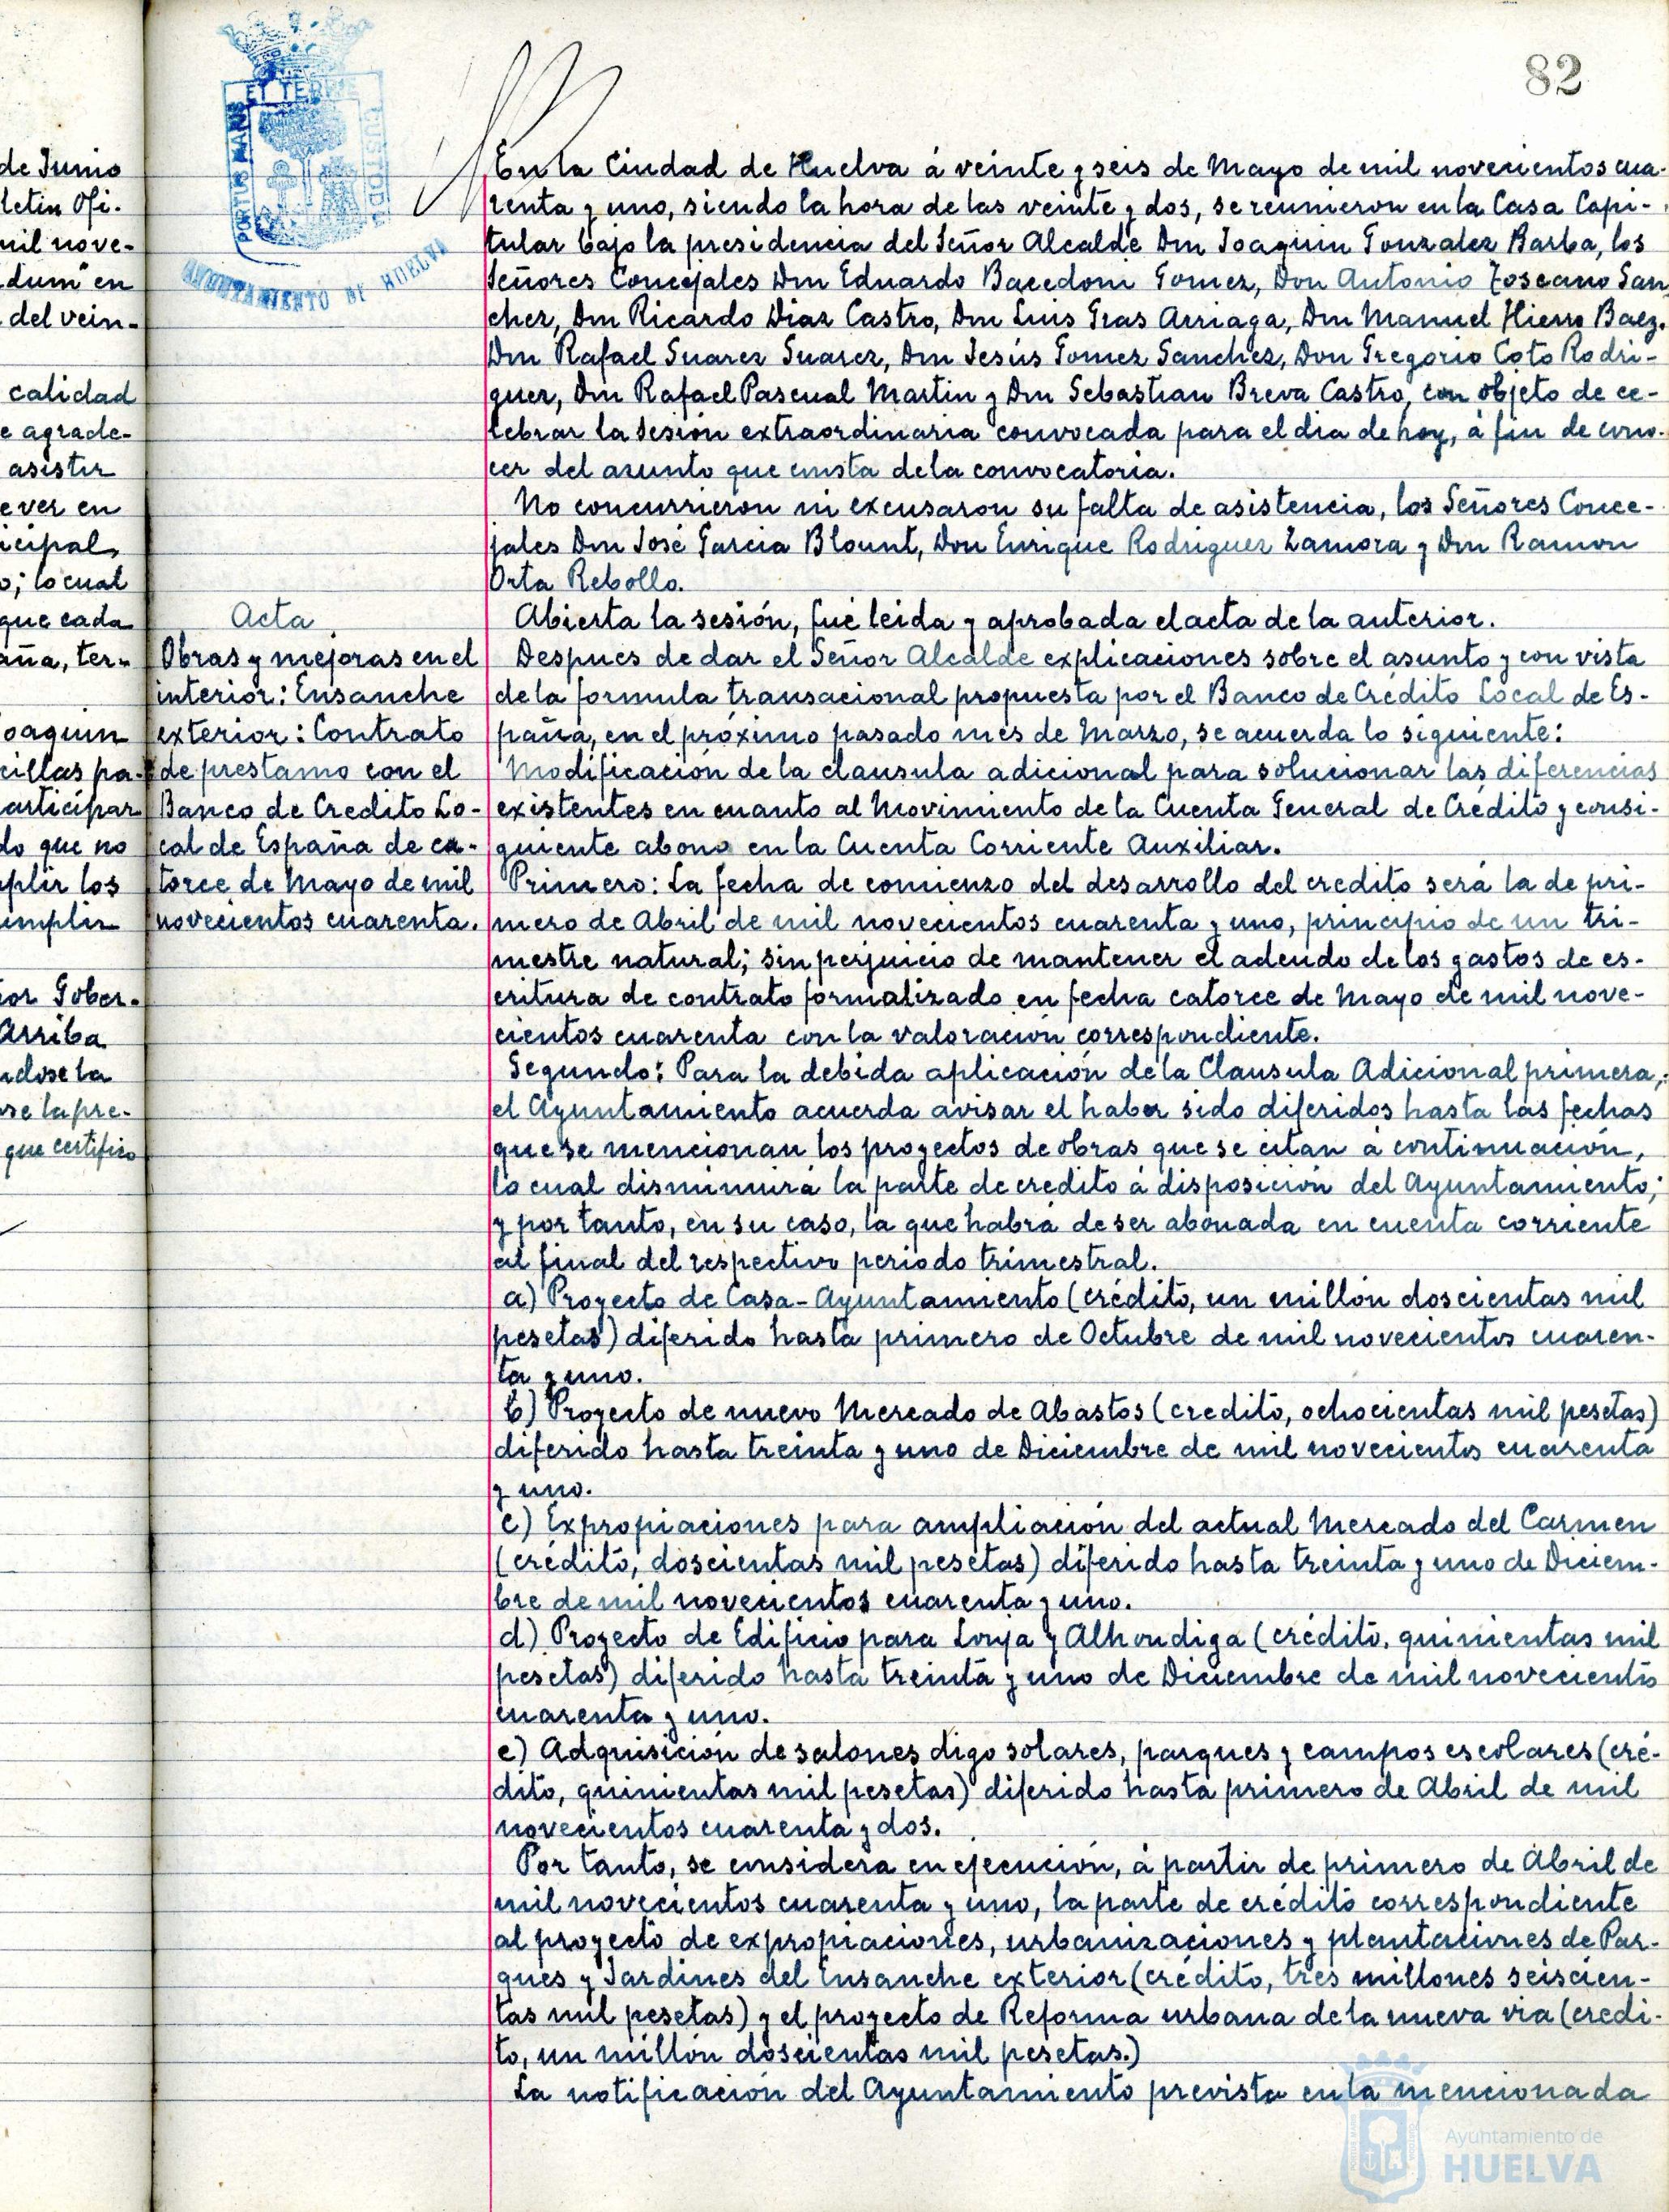 82
PORTUS MARIS
ET TERRE
CUSTODIA
AYUNTAMIENTO DE HUELVA
de Junio
letin Ofi-
mil nove-
dum" en
del vein-
calidad
e agrade-
asistir
e ver en
icipal,
o; lo cual
que cada
aña, ter-
oaquin
cillas pa-
articipar
do que no
plir los
umplir
or Gober-
Arriba
ndose la
se la pre-
que certifico
Acta
Obras y mejoras en el
interior: Ensanche
exterior: Contrato
de prestamo con el
Banco de Credito Lo-
cal de España de ca-
torce de Mayo de mil
novecientos cuarenta.
En la Ciudad de Huelva á veinte y seis de Mayo de mil novecientos cua-
renta y uno, siendo la hora de las veinte y dos, se reunieron en la Casa Capi-
tular bajo la presidencia del Señor Alcalde Don Joaquin Gonzalez Barba, los
Señores Concejales Don Eduardo Bacedoni Gomez, Don Antonio Toscano San-
chez, Don Ricardo Diaz Castro, Don Luis Gras Arriaga, Don Manuel Hierro Baez,
Don Rafael Suarez Suarez, Don Jesús Gomez Sanchez, Don Gregorio Coto Rodri-
guez, Don Rafael Pascual Martin y Don Sebastian Breva Castro, con objeto de ce-
lebrar la sesión extraordinaria convocada para el dia de hoy, á fin de cono-
cer del asunto que consta de la convocatoria.
No concurrieron ni excusaron su falta de asistencia, los Señores Conce-
jales Don José Garcia Blount, Don Enrique Rodriguez Zamora y Don Ramon
Orta Rebollo.
Abierta la sesión, fué leida y aprobada el acta de la anterior.
Despues de dar el Señor Alcalde explicaciones sobre el asunto y con vista
de la formula transacional propuesta por el Banco de Crédito Local de Es-
paña, en el próximo pasado mes de Marzo, se acuerda lo siguiente:
Modificación de la clausula adicional para solucionar las diferencias
existentes en cuanto al Movimiento de la Cuenta General de Crédito y consi-
guiente abono en la Cuenta Corriente Auxiliar.
Primero: La fecha de comienzo del desarrollo del credito será la de pri-
mero de Abril de mil novecientos cuarenta y uno, principio de un tri-
mestre natural; sin perjuicio de mantener el adeudo de los gastos de es-
critura de contrato formalizado en fecha catorce de Mayo de mil nove-
cientos cuarenta con la valoración correspondiente.
Segundo: Para la debida aplicación de la Clausula Adicional primera,
el Ayuntamiento acuerda avisar el haber sido diferidos hasta las fechas
que se mencionan los proyectos de obras que se citan á continuación,
lo cual disminuirá la parte de credito á disposición del Ayuntamiento;
y por tanto, en su caso, la que habrá de ser abonada en cuenta corriente
al final del respectivo periodo trimestral.
a) Proyecto de Casa-Ayuntamiento (crédito, un millón doscientas mil
pesetas) diferido hasta primero de Octubre de mil novecientos cuaren-
ta y uno.
b) Proyecto de nuevo Mercado de Abastos (credito, ochocientas mil pesetas)
diferido hasta treinta y uno de Diciembre de mil novecientos cuarenta
y uno.
c) Expropiaciones para ampliación del actual Mercado del Carmen
(crédito, doscientas mil pesetas) diferido hasta treinta y uno de Diciem-
bre de mil novecientos cuarenta y uno.
d) Proyecto de Edificio para Lonja y Alhondiga (crédito, quinientas mil
pesetas) diferido hasta treinta y uno de Diciembre de mil novecientos
cuarenta y uno.
e) Adquisición de salones digo solares, parques y campos escolares (cré-
dito, quinientas mil pesetas) diferido hasta primero de Abril de mil
novecientos cuarenta y dos.
Por tanto, se considera en ejecución, á partir de primero de Abril de
mil novecientos cuarenta y uno, la parte de crédito correspondiente
al proyecto de expropiaciones, urbanizaciones y plantaciones de Par-
ques y Jardines del Ensanche exterior (crédito, tres millones seiscien-
tas mil pesetas) y el proyecto de Reforma urbana de la nueva via (credi-
to, un millón doscientas mil pesetas.)
La notificación del Ayuntamiento prevista en la mencionada
Ayuntamiento de
HUELVA